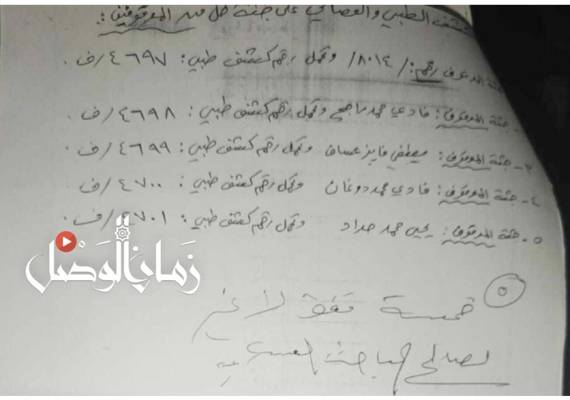 الكشف الطبي والقضائي على جثة كل من الموقوفين:
جثة الموقوف رقم: /٨٠١٤/ وتحمل رقم كشف طبي: ٤٦٩٧/ف.
- جثة الموقوف: فادي محمد وتحمل رقم كشف طبي: ٤٦٩٨/ف.
٣- جثة الموقوف: مصطفى فايز عساف وتحمل رقم كشف طبي: ٤٦٩٩/ف.
٤- جثة الموقوف: فادي محمد دوغان وتحمل رقم كشف طبي: ٤٧٠٠/ف.
٥- جثة الموقوف: يحيى محمد حداد وتحمل رقم كشف طبي: ٤٧٠١/ف.
زمان الوصل
٥
خمسة فقط لا غير
لصالح المباحث العسكرية